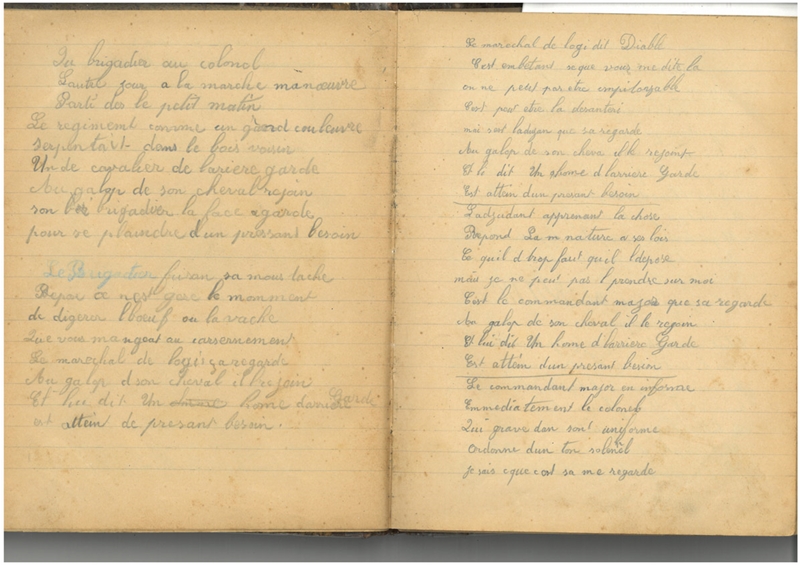 Du brigadier au colonel
Lautre jour a la marche manœuvre
Parti des le petit matin
Le regiment comme un grand couleuvre
serpentait dans le bois voisin
Un de cavalier de lariere garde
Au galop de son cheval rejoin
son brigadier la face garde
pour se plaindre d'un pressant besoin
Le Brigadier frisan sa moustache
Repon ce nest gere le momment
de digerer l'bœuf ou la vache
Que vous mangeat au casernement
Le marechal de logis ça regarde
Au galop dson cheval il rejoin
Et lui dit Un home darriere Garde
est attein de presant besoin.
Le marechal de logi dit Diable
C'est embetant ceque vous me dite la
on ne peut par etre impitoyable
C'est peut etre la
mai sait ladjudan que sa regarde
Au galop de son cheva il le rejoint
Et li dit Un home d'larriere Garde
Est attein d'un presant besoin
L'adjudant apprenant la chose
Repond La m nature a ses lois
Ce quil d trop faut quil ldepose
mai je ne peut pas l prendre sur moi
C'est le commandant major que sa regarde
Au galop de son cheval il le rejoin
Et lui dit Un home d larriere Garde
Est attein d'un presant besoin
Le commandant major en informe
Emmediatement le colonel
Qui grave dan son uniforme
ordonne d'un ton solenel
je sais ceque c'est sa me regarde